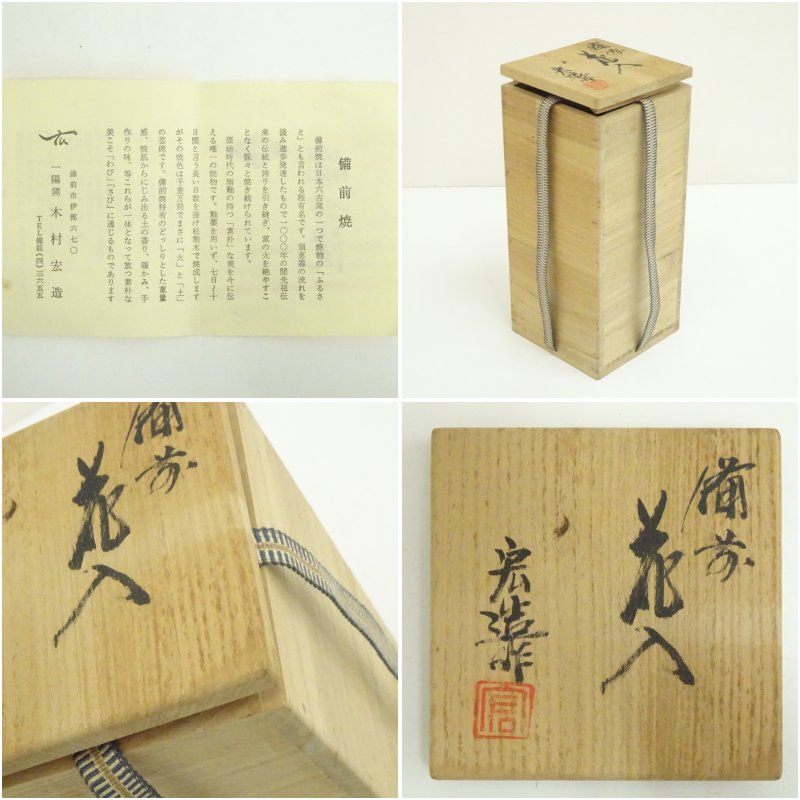 備前焼
備前焼は日本六古窯の一つで焼物の「ふるさ
と」とも言われる程有名です。須恵器の流れを
汲み進歩発達したもので一〇〇〇年の間先祖伝
来の伝統と誇りを引き継ぎ、窯の火を絶やすこ
となく脈々と焼き続けられています。
原始時代の無釉の持つ「素朴」な美を今に伝
える唯一の焼物です。釉薬を用いず、七日〜十
日間と言う長い日数を掛け松割木で焼成します
がその焼色は千差万別でまさに「火」と「土」
の芸術です。備前焼特有のどっしりとした重量
感、焼肌からにじみ出る土の香り、暖かみ、手
作りの味、等これらが一体となって放つ素朴な
美こそ「わび」「さび」に通じるものであります
備前市伊部六七〇
一陽窯 木村宏造
TEL備前(四)三六五五
備前
花入
宏造作
備前
花入
備前
花入
宏造作
宏